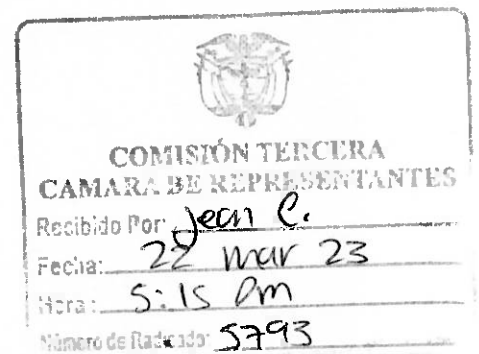 COMISIÓN TERCERA
CAMARA DE REPRESENTANTES
Recibido Por: Jean C.
Fecha: 22 mar 23
Hora: 5:15 Pm
Número de Radicado: 5793